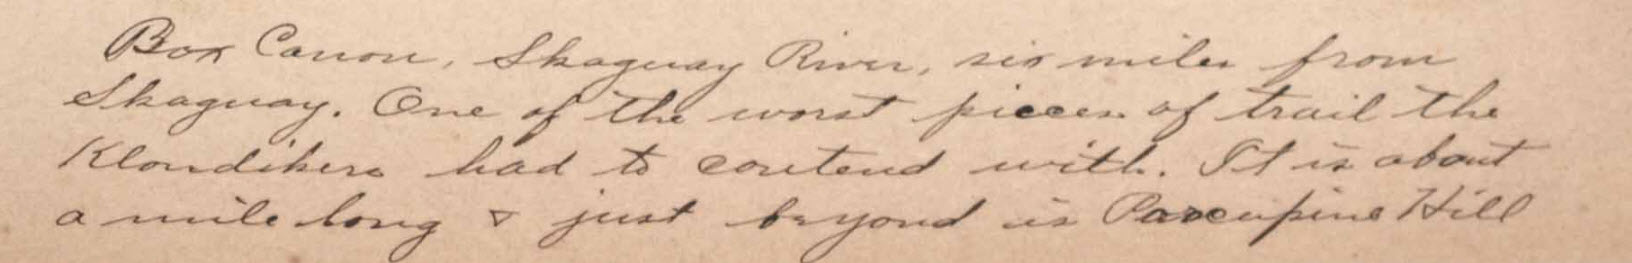 Box Canon, Skaguay River, six miles from
Skaguay. One of the worst pieces of trail the
Klondikers had to contend with. It is about
a mile long & just beyond is Porcupine Hill